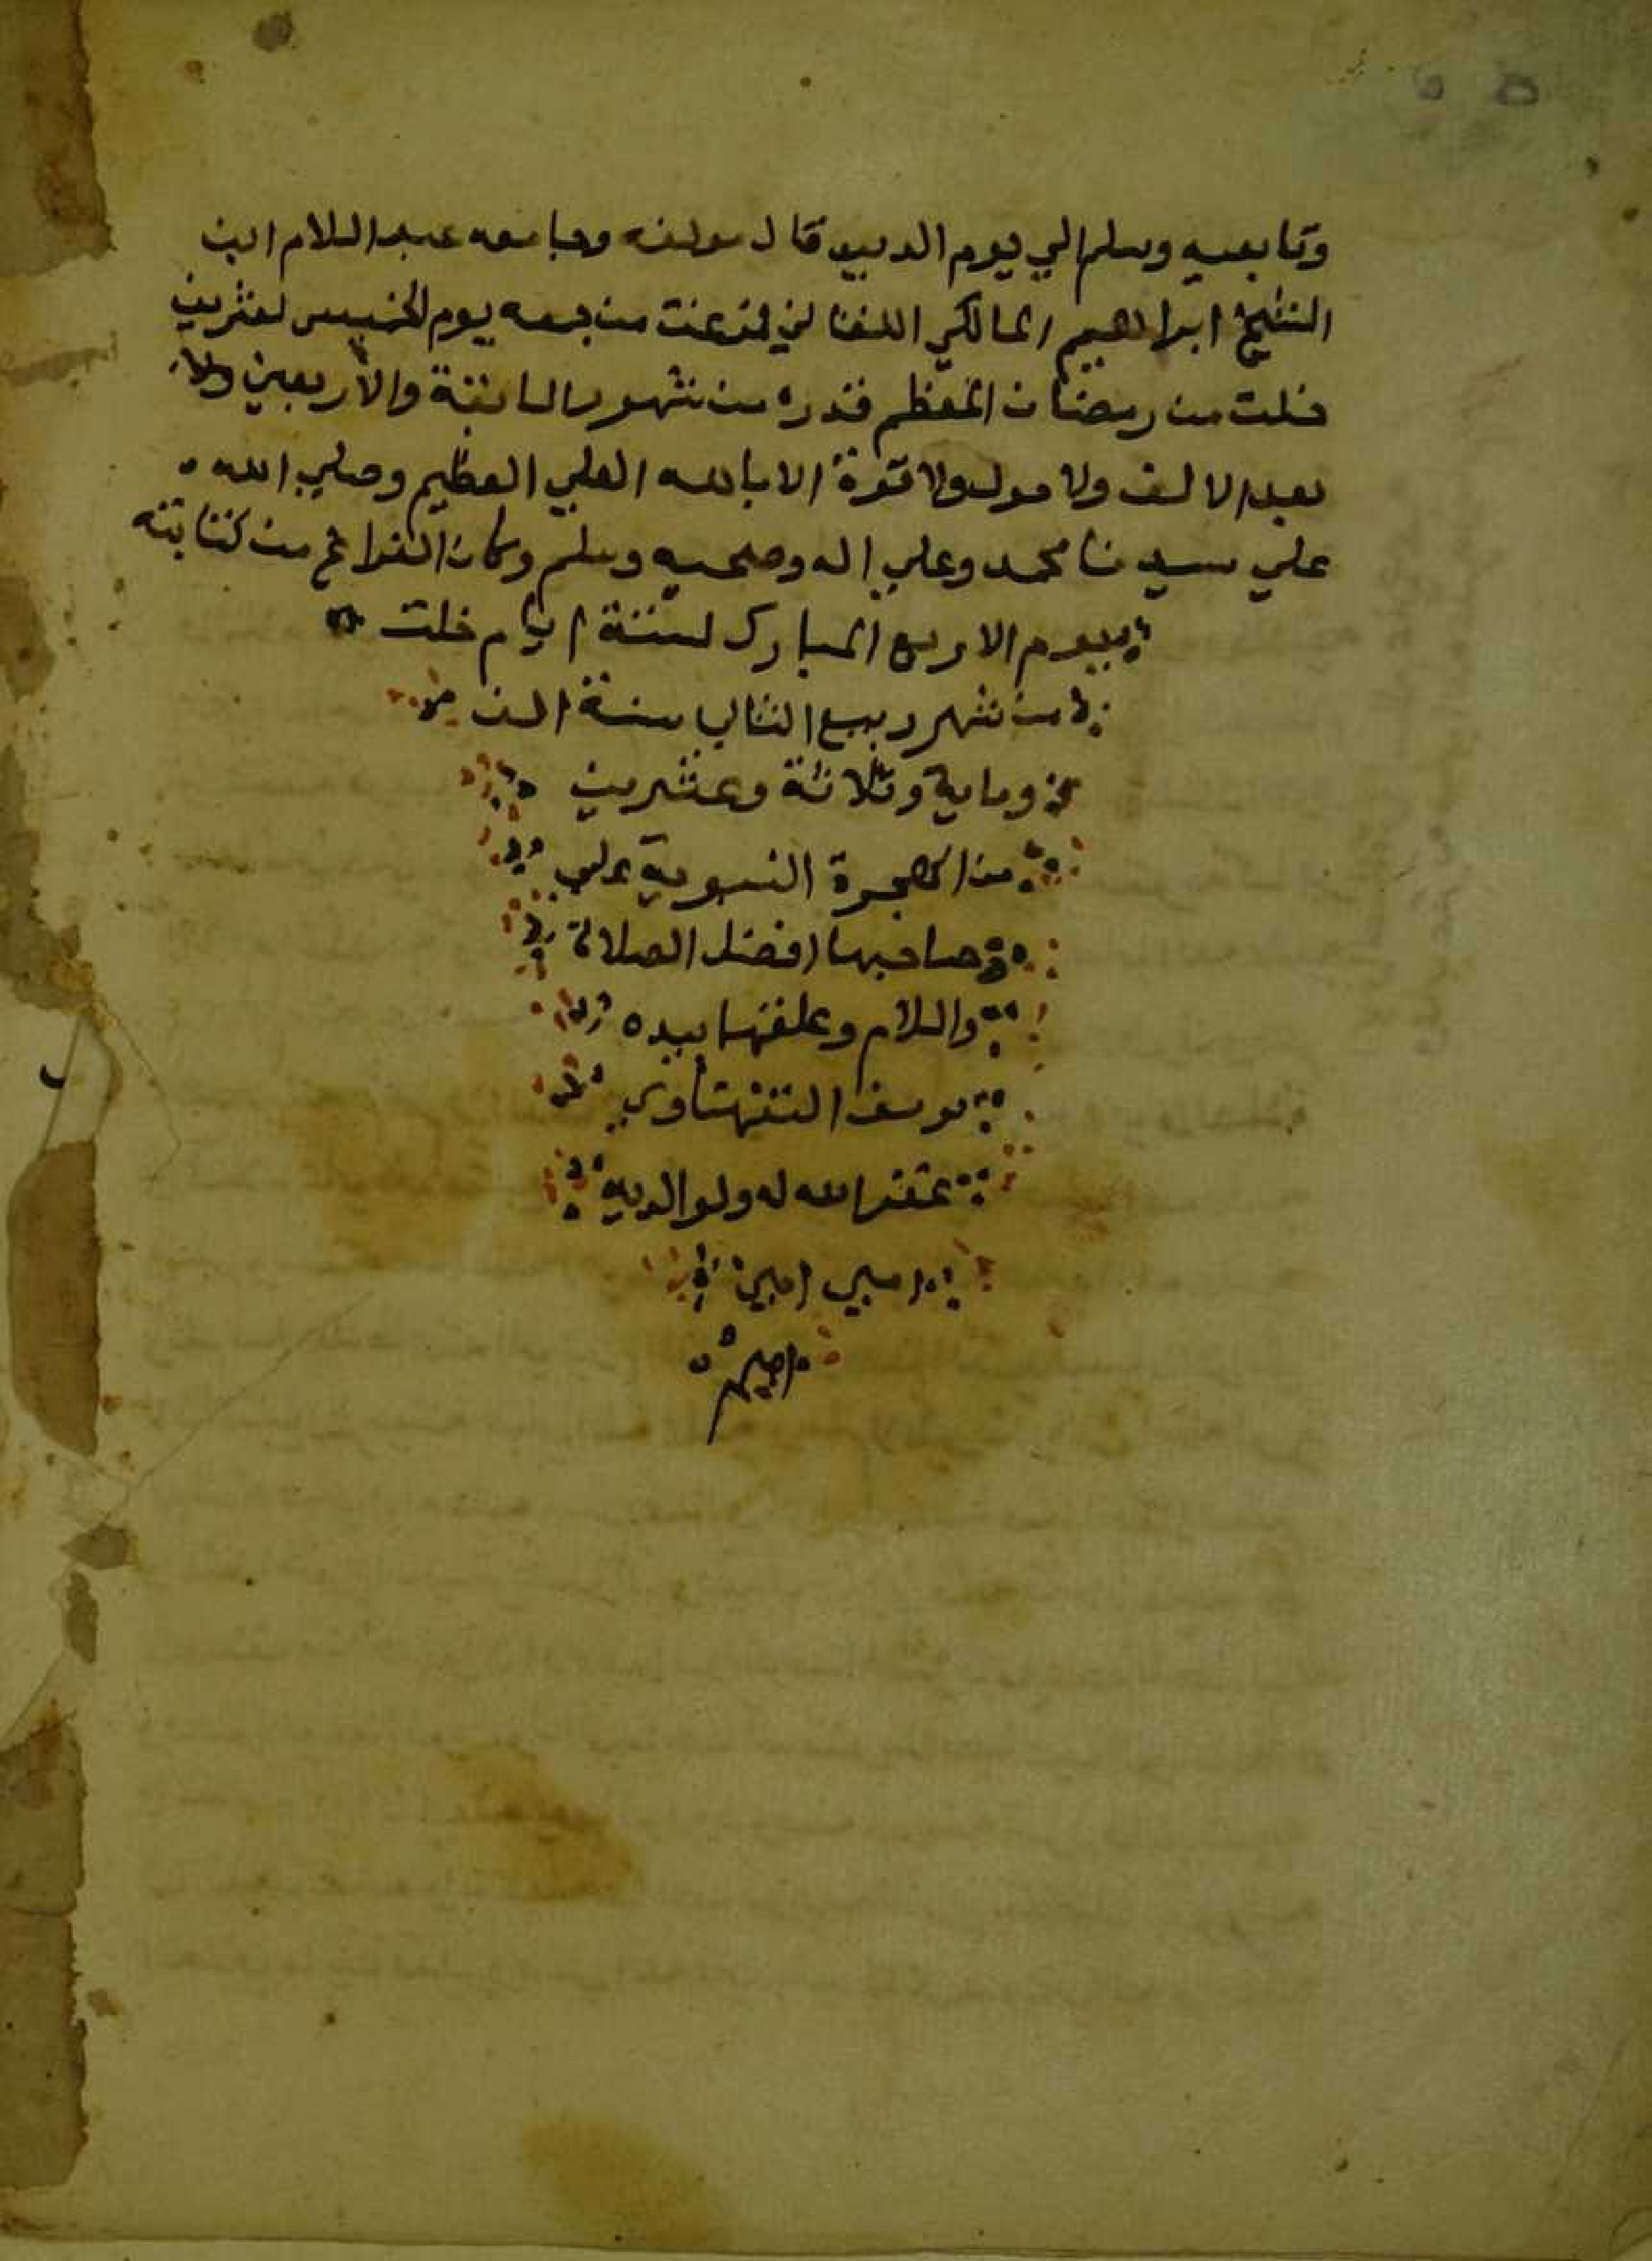 وتابعيه وسلم الي يوم الدين قال مولفه وجامعه عبد السلام ابن
الشيخ ابراهيم المالكي اللقاني فرغت من جمعه يوم الخميس لعشرين
خلت من رمضان المعظم قدره من شهور السابعة والأربعين
بعد الالف ولا حول ولا قوة الا بالله العلي العظيم وصلي الله
علي سيدنا محمد وعلي اله وصحبه وسلم وكان الفراغ من كتابته
بيوم الاربع المبارك لستة ايام خلت
من شهر ربيع الثاني سنة الف
وماية وثلاثة وعشرين
من الهجرة النبوية علي
صاحبها افضل الصلاة
والسلام وعلقها بيده
يوسف
غفر الله له ولوالديه
امين امين
امين